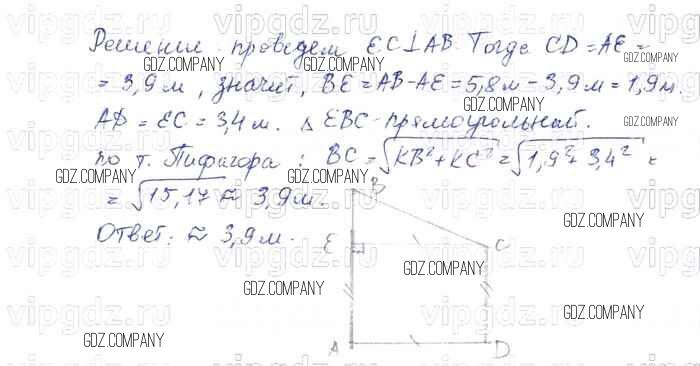 Решение. проведем EC⊥AB. Тогда CD = AE =
= 3,9 м, значит, BE = AB - AE = 5,8 м - 3,9 м = 1,9 м.
AD = EC = 3,4 м. △ EBC - прямоугольный.
по т. Пифагора: BC = √KB² + KC² = √1,9² + 3,4² =
= √15,17 ≈ 3,9 м.
Ответ: ≈ 3,9 м.
B
E
C
A
D
GDZ.COMPANY
GDZ.COMPANY
GDZ.COMPANY
GDZ.COMPANY
GDZ.COMPANY
GDZ.COMPANY
GDZ.COMPANY
GDZ.COMPANY
GDZ.COMPANY
GDZ.COMPANY
GDZ.COMPANY
GDZ.COMPANY
vipgdz.ru
vipgdz.ru
vipgdz.ru
vipgdz.ru